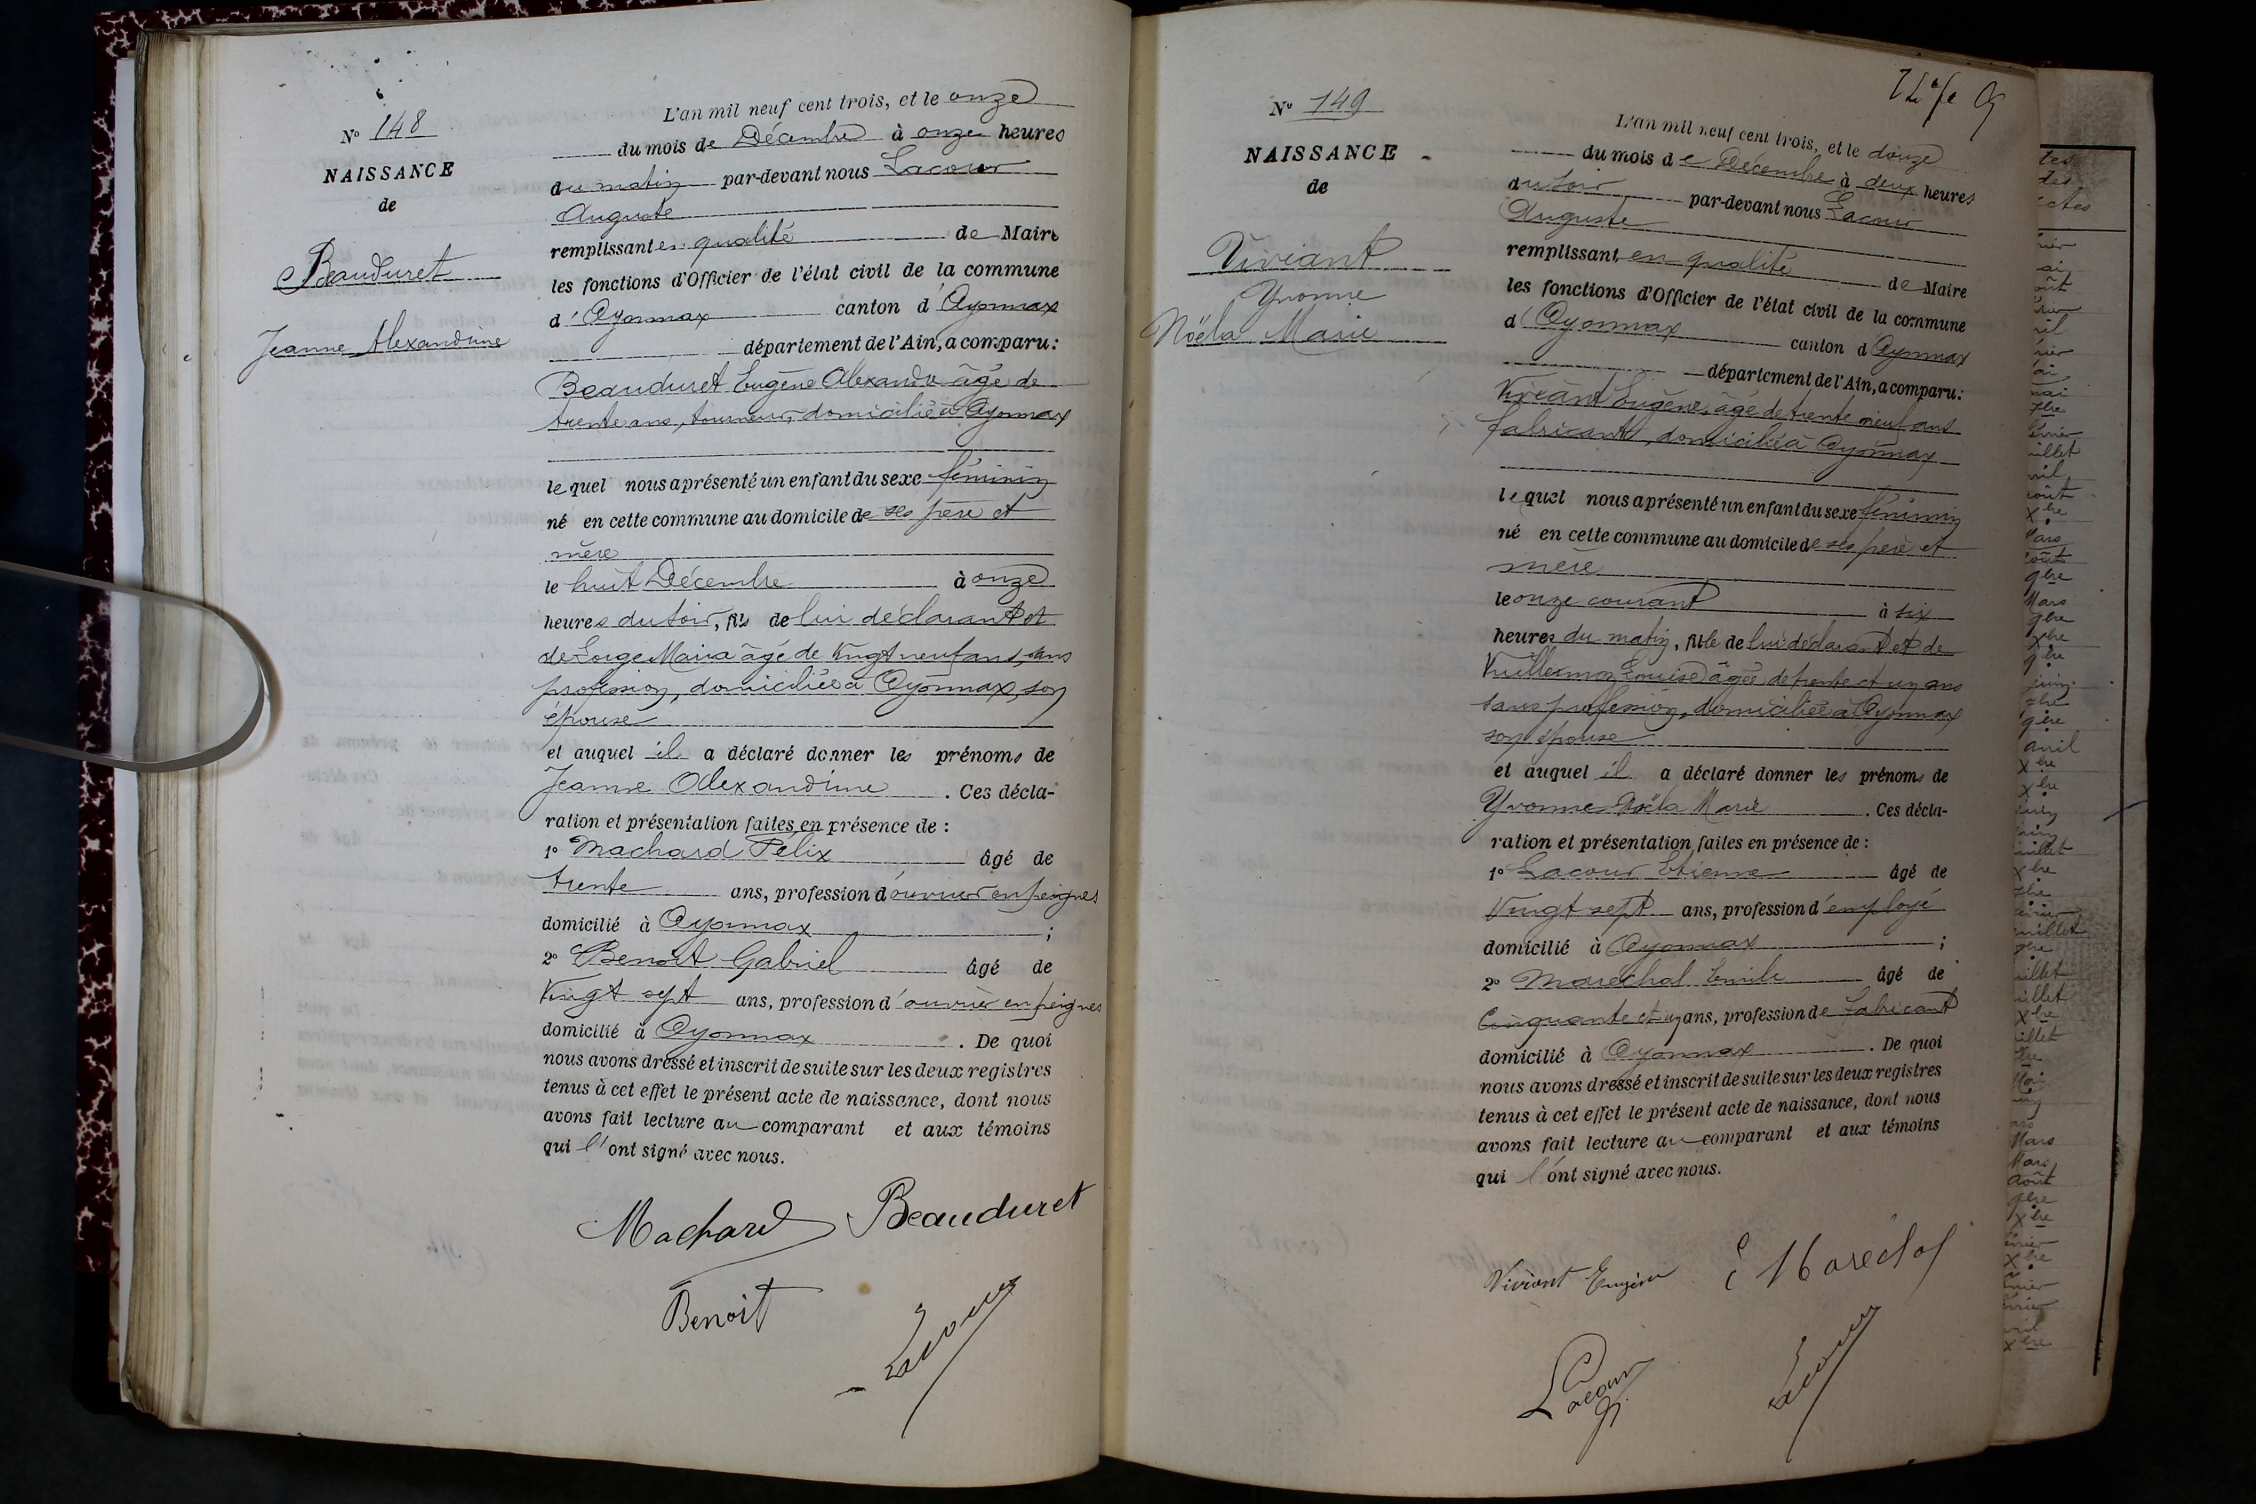 N° 148
NAISSANCE
de
Beauduret
Jeanne Alexandrine
L'an mil neuf cent trois, et le onze
du mois de Décembre à onze heures
du matin par-devant nous Lacour
Auguste
remplissant en qualité de Maire
les fonctions d'Officier de l'état civil de la commune
d'Oyonnax canton d'Oyonnax
département de l'Ain, a comparu:
Beauduret Eugène Alexandre âgé de
trente ans, tourneur, domicilié à Oyonnax
lequel nous a présenté un enfant du sexe féminin
né en cette commune au domicile de ses père et
mère
le huit Décembre à onze
heures du soir, fils de lui déclarant et
de Lorge Maria âgé de vingt neuf ans, sans
profession, domiciliée à Oyonnax, son
épouse
et auquel il a déclaré donner les prénoms de
Jeanne Alexandrine . Ces décla-
ration et présentation faites en présence de :
1° Machard Félix âgé de
trente ans, profession d'ouvrier en peignes
domicilié à Oyonnax ;
2° Benoit Gabriel âgé de
Vingt sept ans, profession d'ouvrier en peignes
domicilié à Oyonnax . De quoi
nous avons dressé et inscrit de suite sur les deux registres
tenus à cet effet le présent acte de naissance, dont nous
avons fait lecture au comparant et aux témoins
qui l'ont signé avec nous.
Machard Beauduret
Benoit
Lacour
N° 149
NAISSANCE
de
Viviant
Yvonne
Noëla Marie
L'an mil neuf cent trois, et le douze
du mois de Décembre à deux heures
du soir par-devant nous Lacour
Auguste
remplissant en qualité de Maire
les fonctions d'Officier de l'état civil de la commune
d'Oyonnax canton d'Oyonnax
département de l'Ain, a comparu:
Viviant Eugène, âgé de trente neuf ans
fabricant, domicilié à Oyonnax
lequel nous a présenté un enfant du sexe féminin
né en cette commune au domicile de ses père et
mère
le onze courant à six
heures du matin, fille de lui déclarant et de
Vuillermoz Louise âgée de trente et un ans
sans profession, domiciliée à Oyonnax
son épouse
et auquel il a déclaré donner les prénoms de
Yvonne Noëla Marie . Ces décla-
ration et présentation faites en présence de :
1° Lacour Etienne âgé de
Vingt sept ans, profession d'employé
domicilié à Oyonnax ;
2° Maréchal Emile âgé de
Cinquante et un ans, profession de fabricant
domicilié à Oyonnax . De quoi
nous avons dressé et inscrit de suite sur les deux registres
tenus à cet effet le présent acte de naissance, dont nous
avons fait lecture au comparant et aux témoins
qui l'ont signé avec nous.
Viviant Eugène E Maréchal
Lacour
Lacour